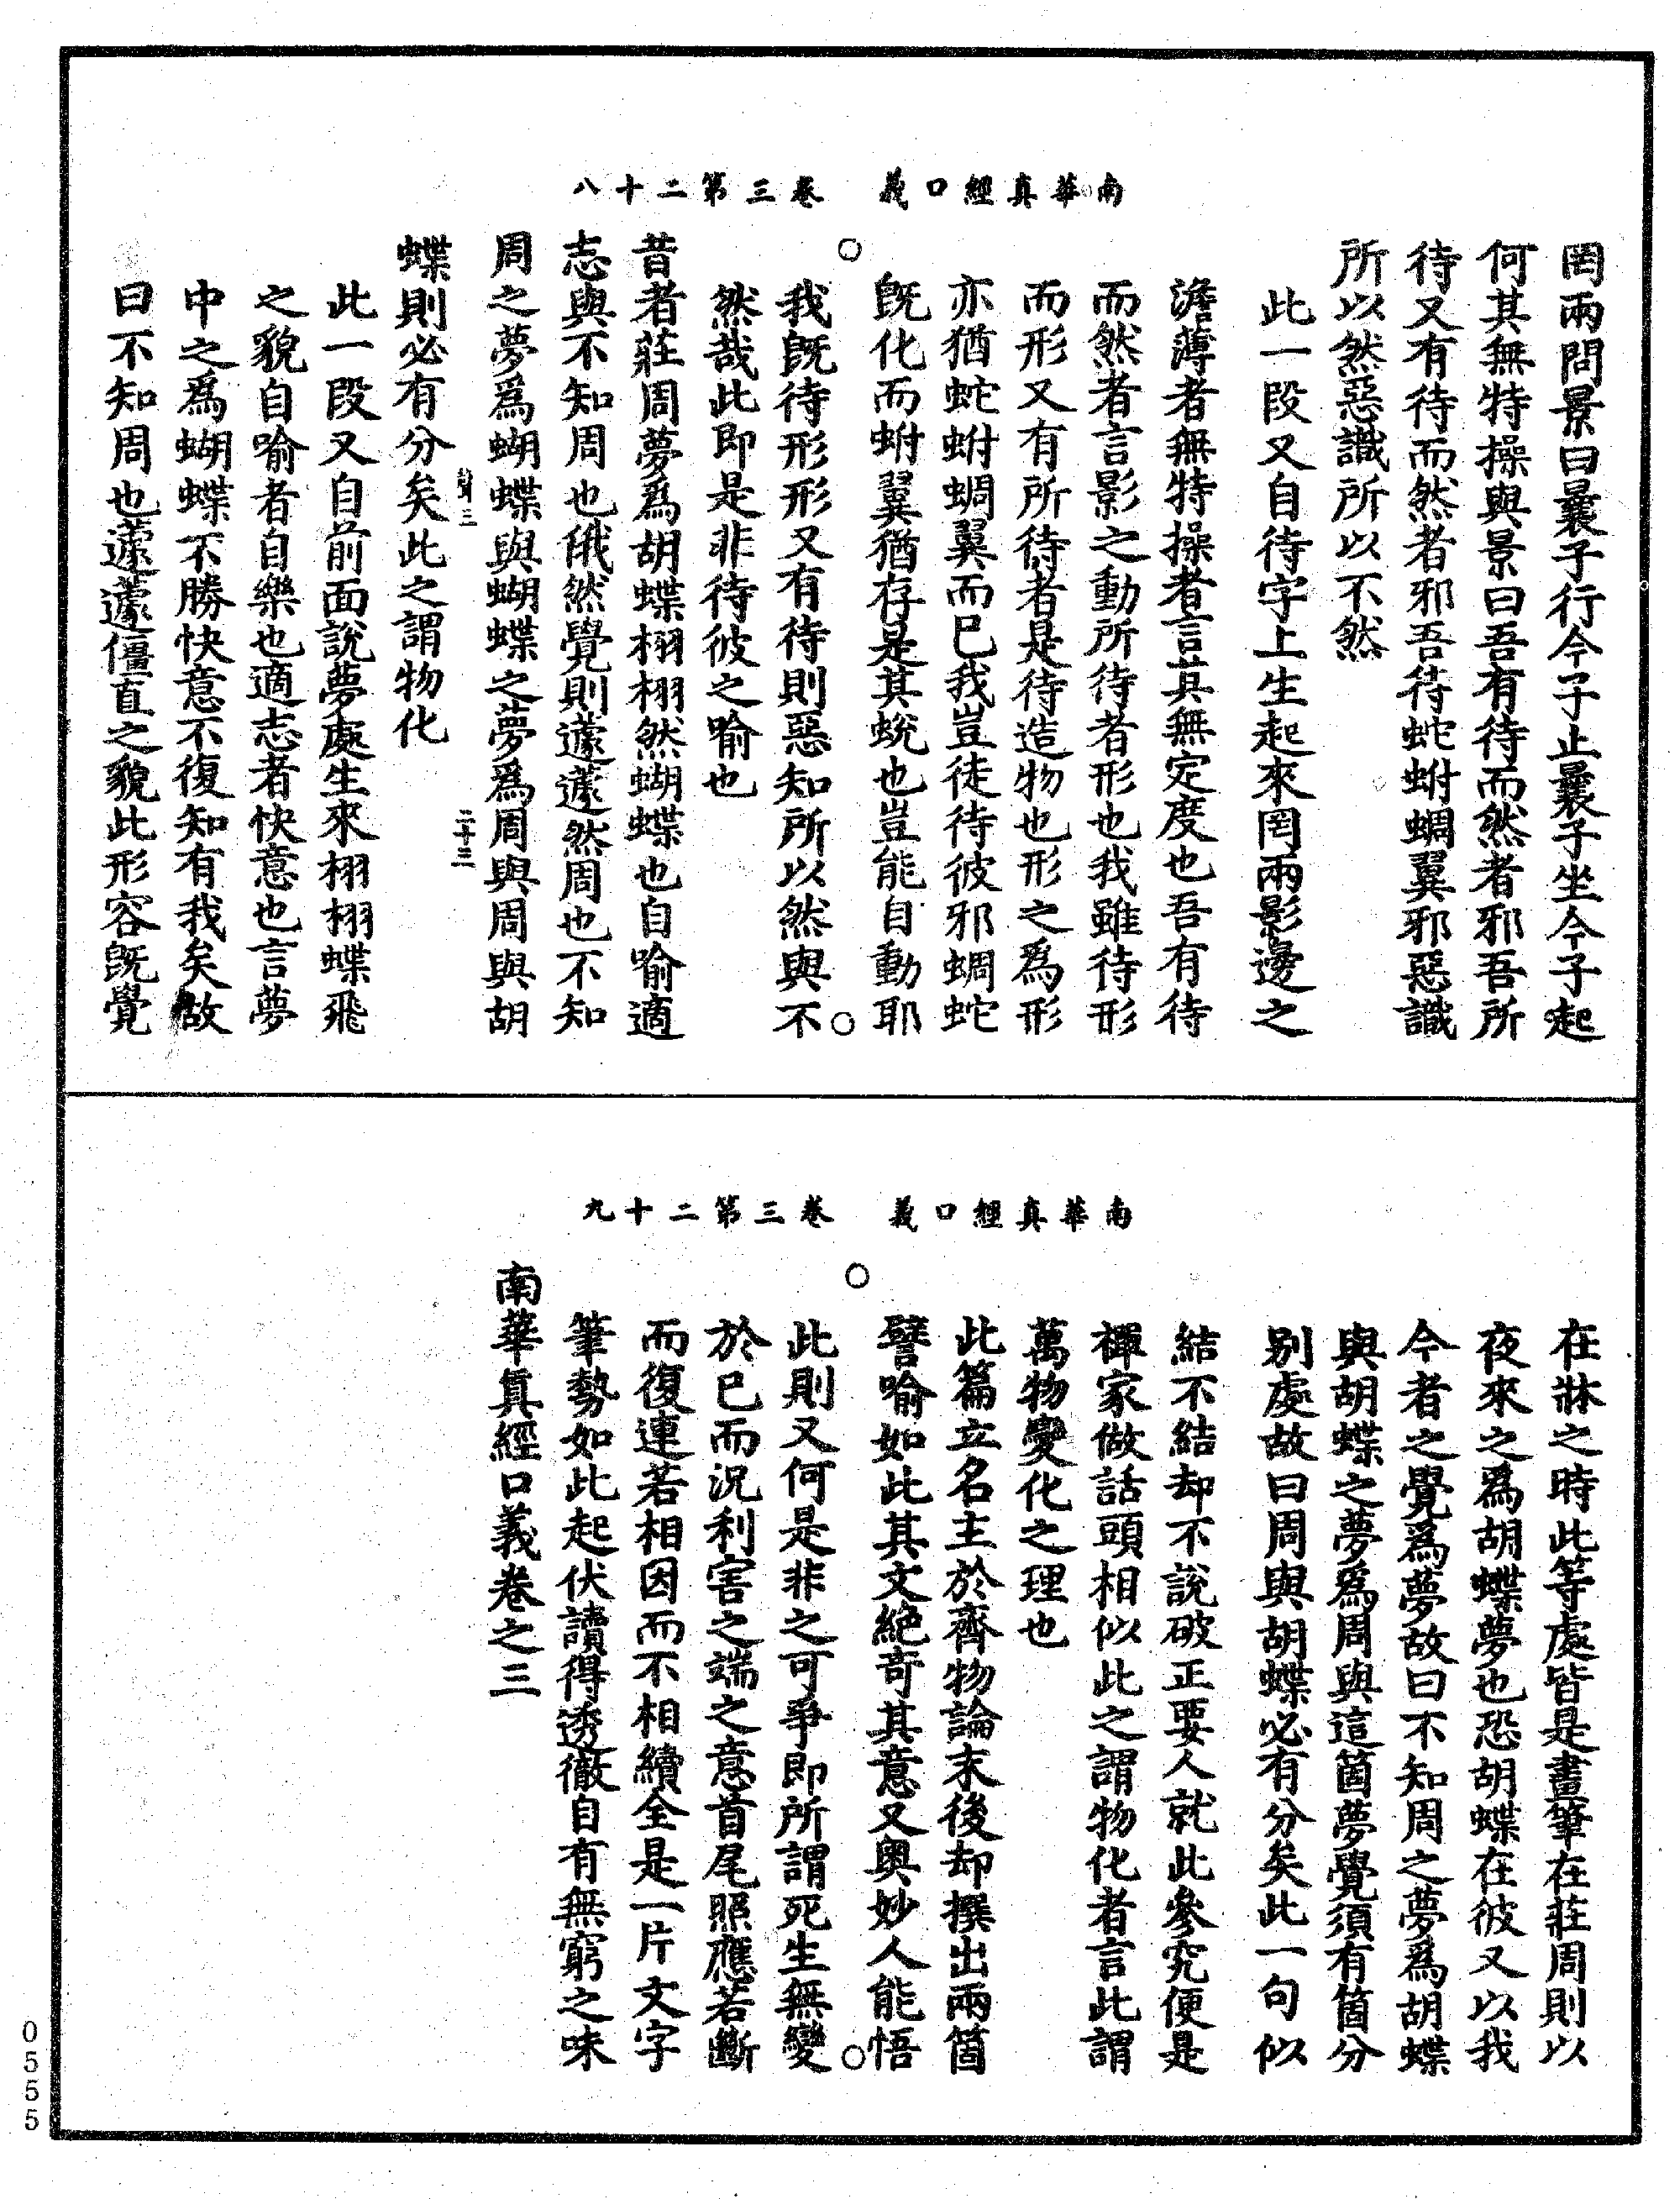 南華真經口義　卷三第二十八
罔兩問景曰曩子行今子止曩子坐今子起
何其無特操與景曰吾有待而然者邪吾所
待又有待而然者邪吾待蛇蚹蜩翼邪惡識
所以然惡識所以不然
此一段又自待字上生起來罔兩影邊之
澹薄者無特操者言其無定度也吾有待
而然者言影之動所待者形也我雖待形
而形又有所待者是待造物也形之爲形
亦猶蛇蚹蜩翼而已我豈徒待彼邪蜩蛇
旣化而蚹翼猶存是其蛻也豈能自動耶
我旣待形形又有待則惡知所以然與不
然哉此即是非待彼之喻也
昔者莊周夢爲胡蝶栩栩然蝴蝶也自喻適
志與不知周也俄然覺則蘧蘧然周也不知
周之夢爲蝴蝶與蝴蝶之夢爲周與周與胡
蝶則必有分矣此之謂物化
二十三
此一段又自前面說夢處生來栩栩蝶飛
之貌自喻者自樂也適志者快意也言夢
中之爲蝴蝶不勝快意不復知有我矣故
曰不知周也蘧蘧僵直之貌此形容旣覺
南華真經口義　卷三第二十九
在牀之時此等處皆是畫筆在莊周則以
夜來之爲胡蝶夢也恐胡蝶在彼又以我
今者之覺爲夢故曰不知周之夢爲胡蝶
與胡蝶之夢爲周與這箇夢覺須有箇分
别處故曰周與胡蝶必有分矣此一句似
結不結却不說破正要人就此參究便是
禪家做話頭相似此之謂物化者言此謂
萬物變化之理也
此篇立名主於齊物論末後却撰出兩箇
譬喻如此其文絕奇其意又奥妙人能悟
此則又何是非之可爭即所謂死生無變
於已而況利害之端之意首尾照應若斷
而復連若相因而不相續全是一片文字
筆勢如此起伏讀得透徹自有無窮之味
南華眞經口義卷之三
0555